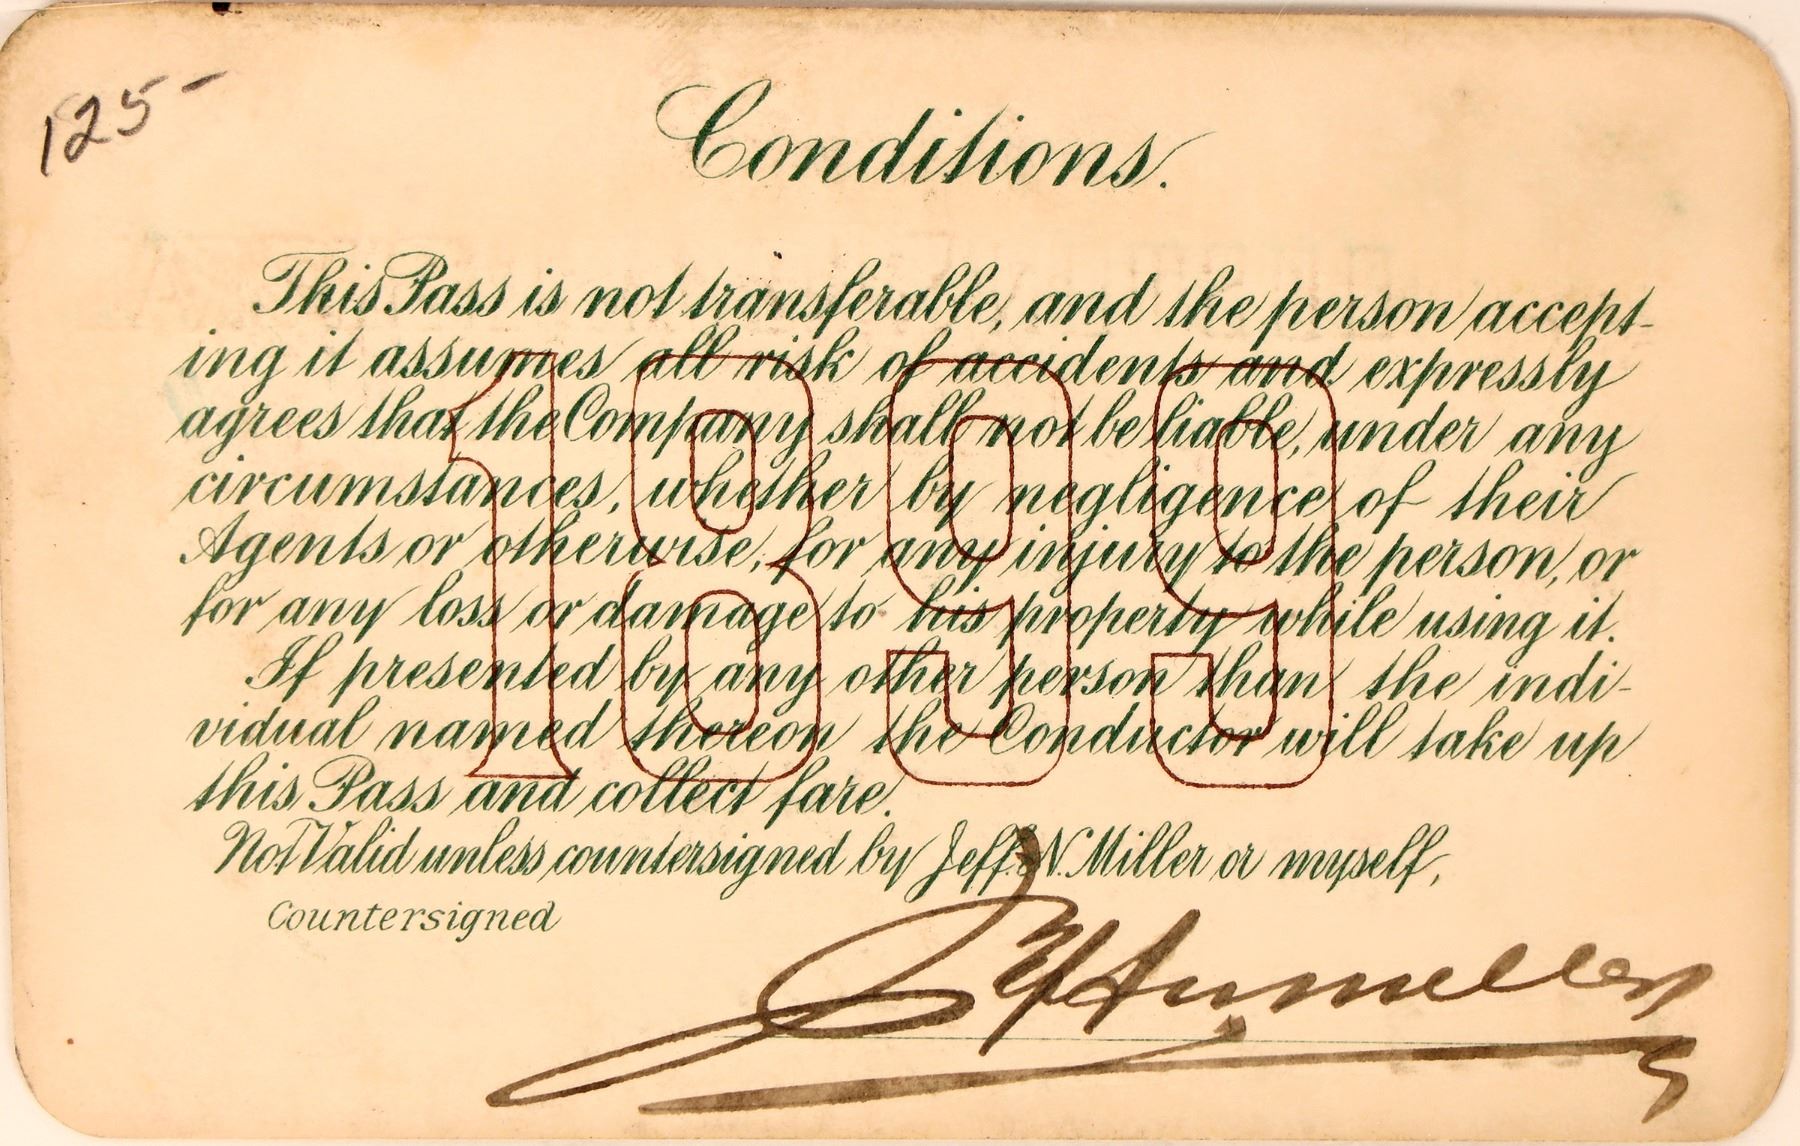 125-
Conditions.
This Pass is not transferable, and the person accept-
ing it assumes all risk of accidents and expressly
agrees that the Company shall not be liable, under any
circumstances, whether by negligence of their
Agents or otherwise, for any injury to the person, or
for any loss or damage to his property while using it.
If presented by any other person than the indi-
vidual named thereon the Conductor will take up
this Pass and collect fare.
1899
Not Valid unless countersigned by Jeff. N. Miller or myself,
Countersigned